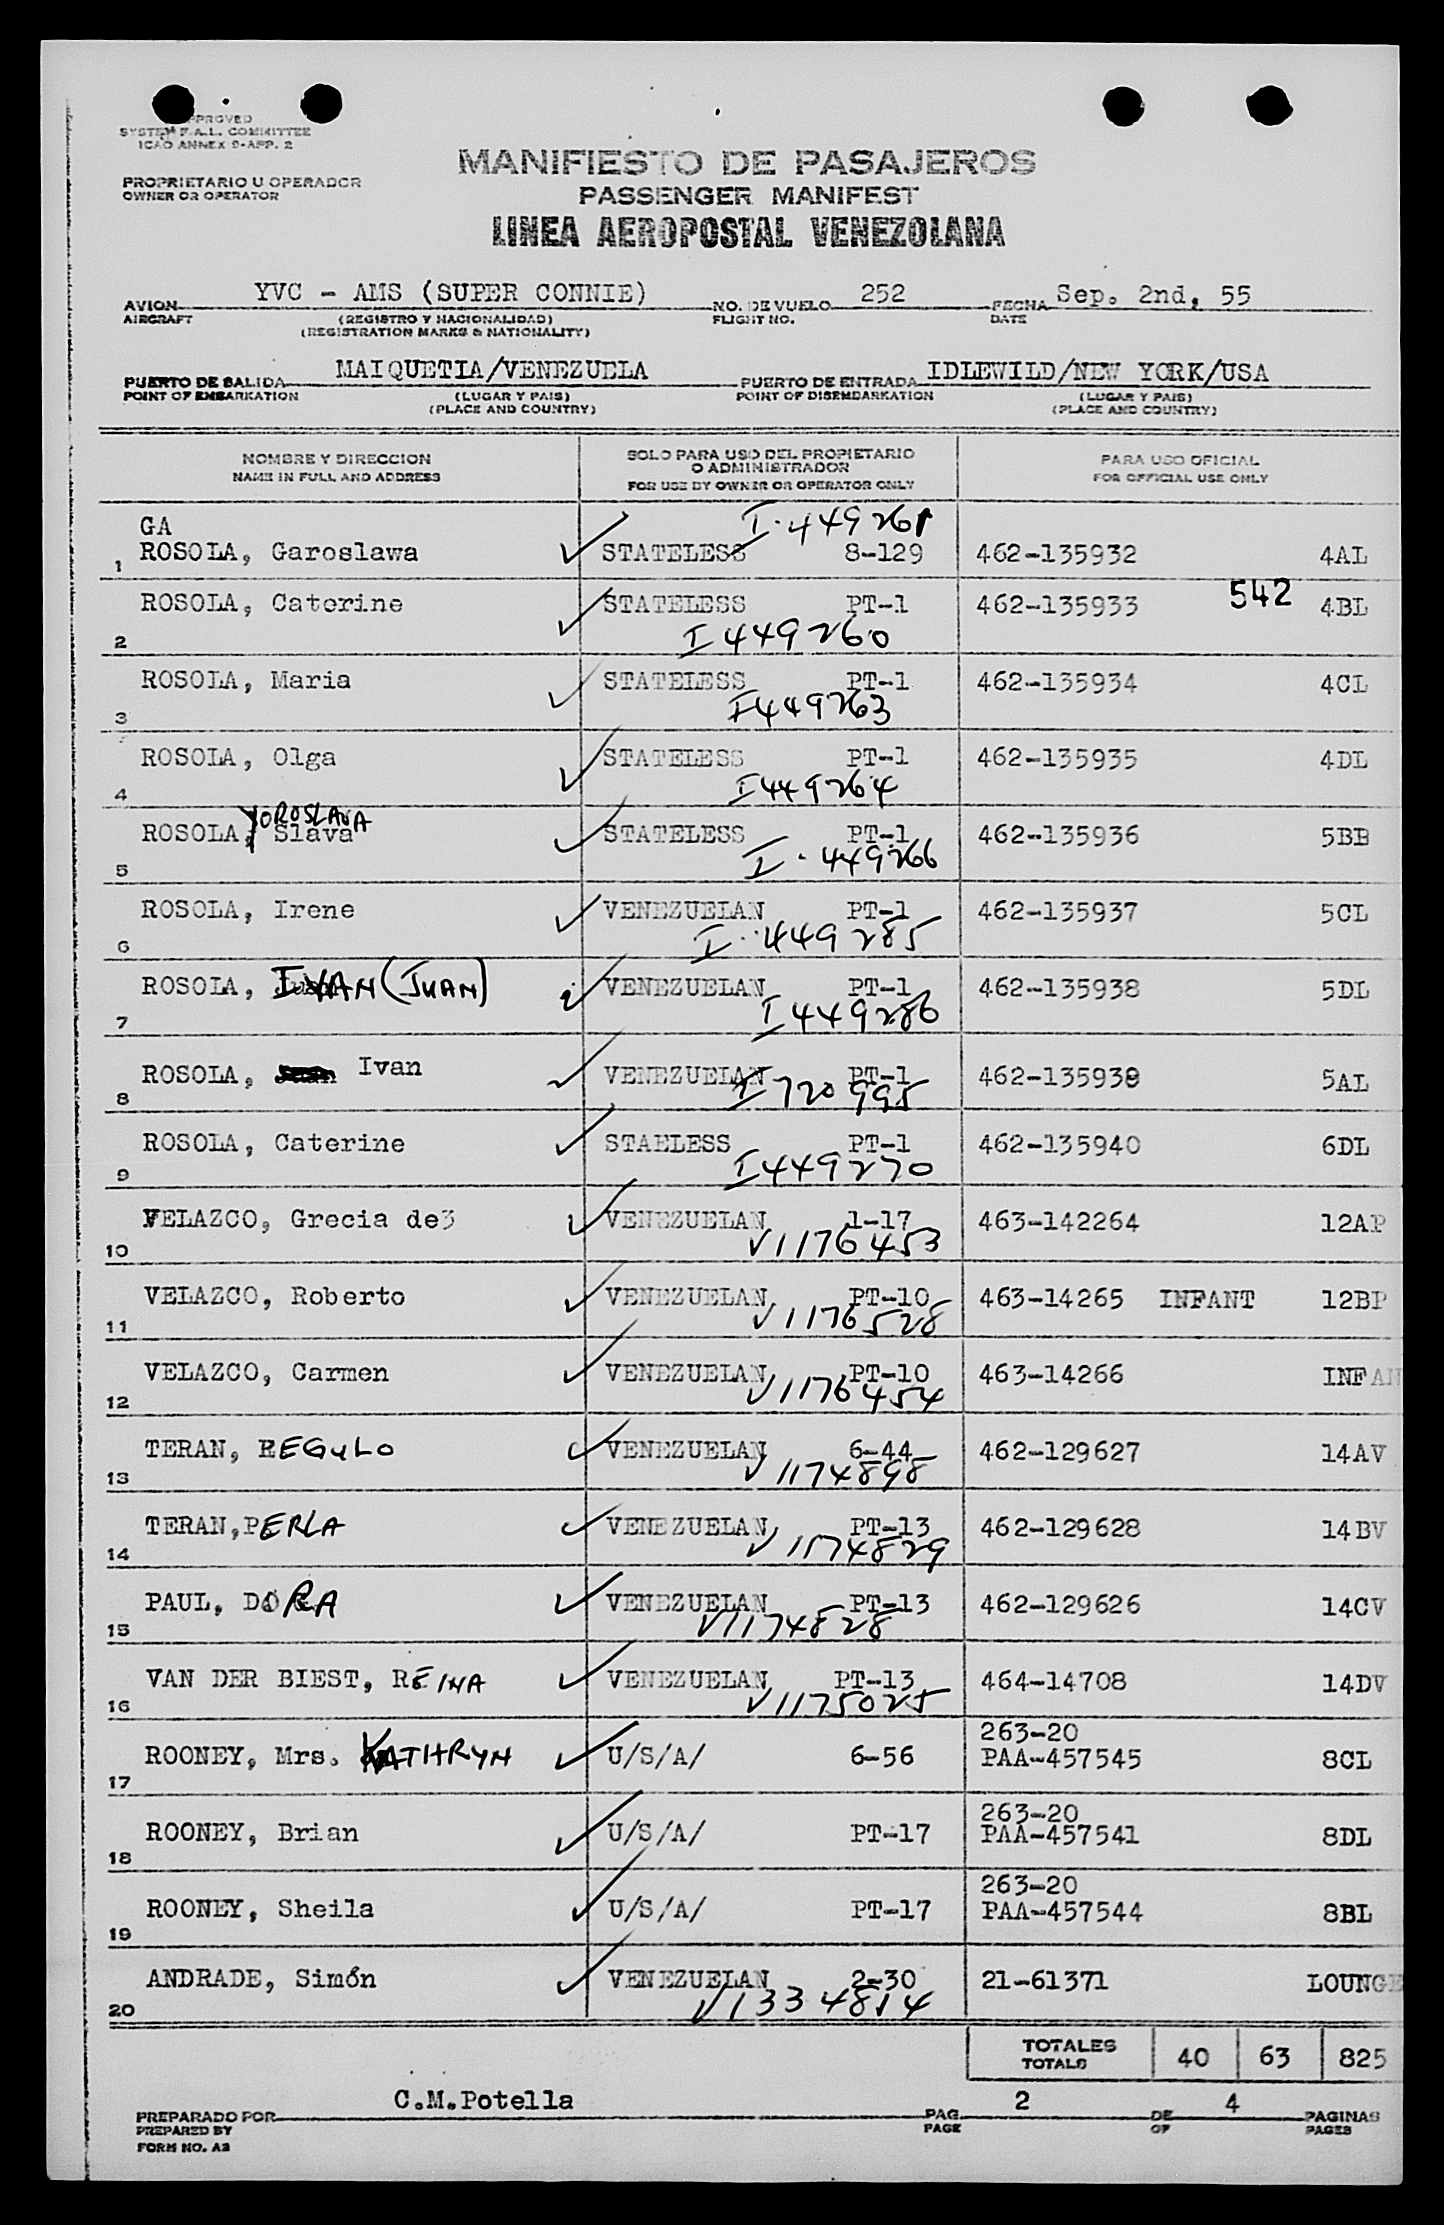 APPROVED
SYSTEM F.A.L. COMMITTEE
ICAO ANNEX 9-APP. 2
PROPRIETARIO U OPERADOR
OWNER OR OPERATOR
MANIFIESTO DE PASAJEROS
PASSENGER MANIFEST
LINEA AEROPOSTAL VENEZOLANA
AVION YVC - AMS (SUPER CONNIE) NO. DE VUELO 252 FECHA Sep. 2nd, 55
AIRCRAFT (REGISTRO Y NACIONALIDAD) FLIGHT NO. DATE
(REGISTRATION MARKS & NATIONALITY)
PUERTO DE SALIDA MAIQUETIA/VENEZUELA PUERTO DE ENTRADA IDLEWILD/NEW YORK/USA
POINT OF EMBARKATION (LUGAR Y PAIS) POINT OF DISEMBARKATION (LUGAR Y PAIS)
(PLACE AND COUNTRY) (PLACE AND COUNTRY)
NOMBRE Y DIRECCION SOLO PARA USO DEL PROPIETARIO O ADMINISTRADOR PARA USO OFICIAL
NAME IN FULL AND ADDRESS FOR USE BY OWNER OR OPERATOR ONLY FOR OFFICIAL USE ONLY
GA I-449261
1 ROSOLA, Garoslawa STATELESS 8-129 462-135932 4AL
ROSOLA, Caterine STATELESS PT-1 462-135933 542 4BL
2 I449260
ROSOLA, Maria STATELESS PT-1 462-135934 4CL
3 I449263
ROSOLA, Olga STATELESS PT-1 462-135935 4DL
4 I449264
YOROSLAVA
ROSOLA, Slava STATELESS PT-1 462-135936 5BB
5 I-449266
ROSOLA, Irene VENEZUELAN PT-1 462-135937 5CL
6 I-449285
ROSOLA, IVAN (JUAN) VENEZUELAN PT-1 462-135938 5DL
7 I449286
ROSOLA, Ivan VENEZUELAN PT-1 462-135939 5AL
8 I720995
ROSOLA, Caterine STAELESS PT-1 462-135940 6DL
9 I449270
VELAZCO, Grecia de3 VENEZUELAN 1-17 463-142264 12AP
10 V1176453
VELAZCO, Roberto VENEZUELAN PT-10 463-14265 INFANT 12BP
11 V1176528
VELAZCO, Carmen VENEZUELAN PT-10 463-14266 INFAN
12 V1176454
TERAN, REGULO VENEZUELAN 6-44 462-129627 14AV
13 V1174898
TERAN, PERLA VENEZUELAN PT-13 462-129628 14BV
14 V1174829
PAUL, DORA VENEZUELAN PT-13 462-129626 14CV
15 V1174828
VAN DER BIEST, REINA VENEZUELAN PT-13 464-14708 14DV
16 V1175025
263-20
ROONEY, Mrs. KATHRYN U/S/A/ 6-56 PAA-457545 8CL
17
263-20
ROONEY, Brian U/S/A/ PT-17 PAA-457541 8DL
18
263-20
ROONEY, Sheila U/S/A/ PT-17 PAA-457544 8BL
19
ANDRADE, Simón VENEZUELAN 2-30 21-61371 LOUNGE
20 V1334814
TOTALES 40 63 825
TOTALS
PREPARADO POR C.M.Potella PAG. 2 DE 4 PAGINAS
PREPARED BY PAGE OF PAGES
FORM NO. A2